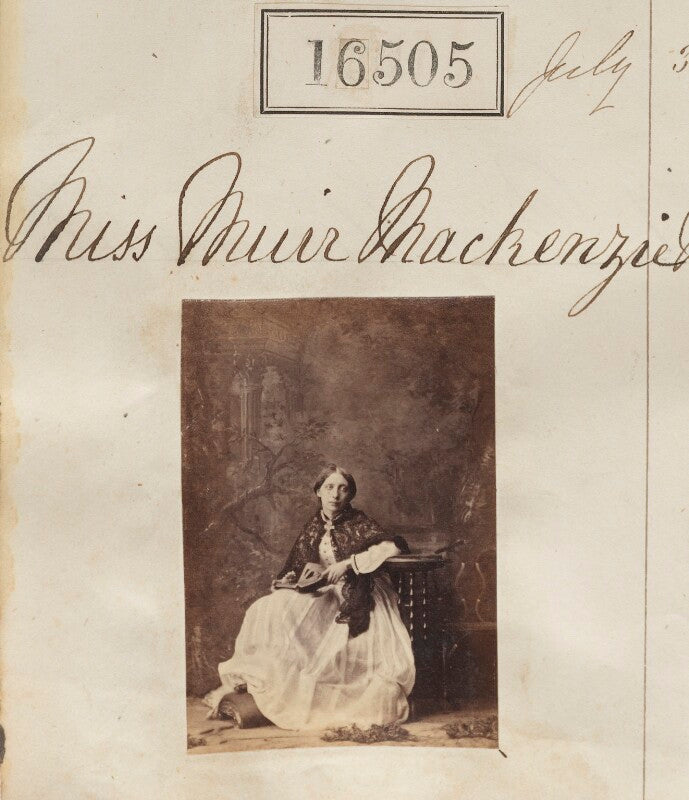 16505
July 3
Miss Muir Mackenzie